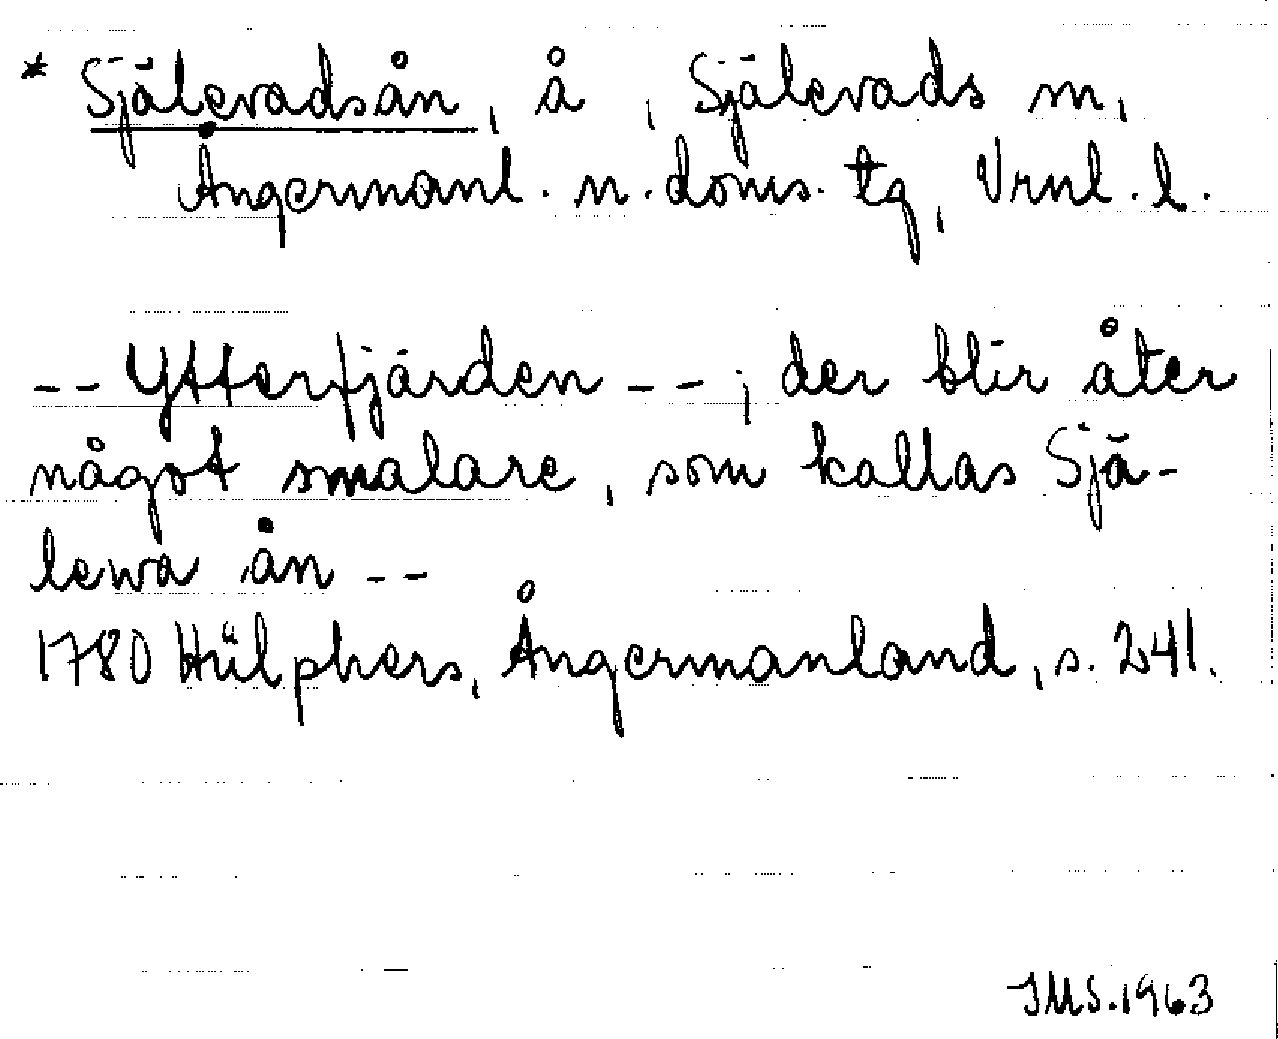 * Själevadsån, å, Själevads m,
Ångermanl. n. doms. tg, Vrnl. l.
-- Ytterfjärden -- ; der blir åter
något smalare, som kallas Sjä-
lewa ån --
1780 Hülphers, Ångermanland, s. 241.
IMS. 1963